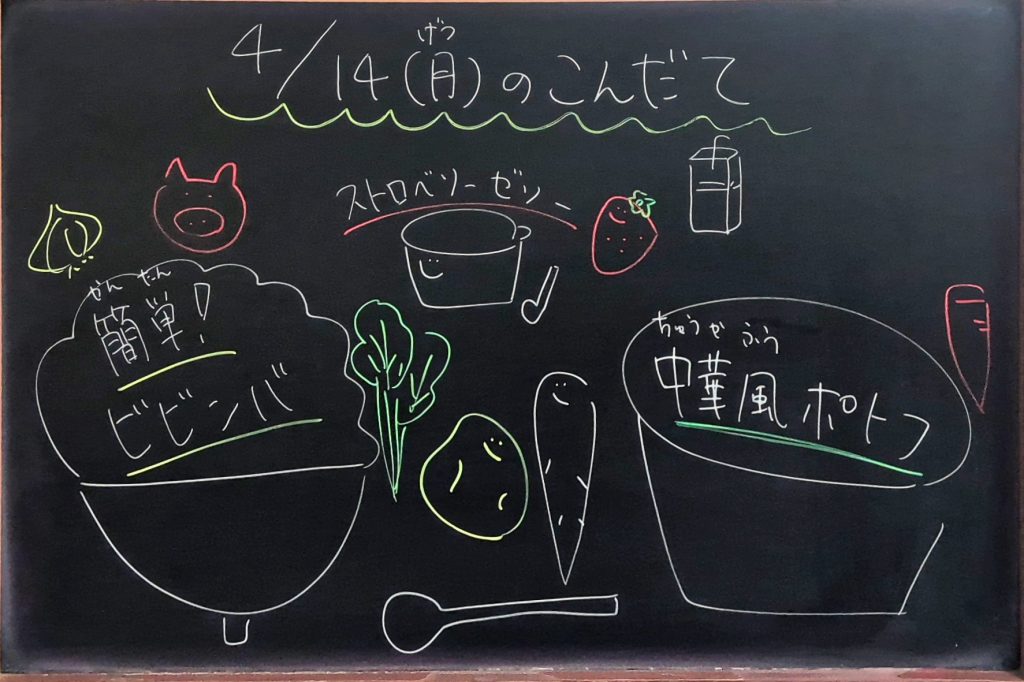 げつ
4/14(月)のこんだて
ストロベリーゼリー
かんたん
簡単!
ビビンバ
ちゅうかふう
中華風ポトフ